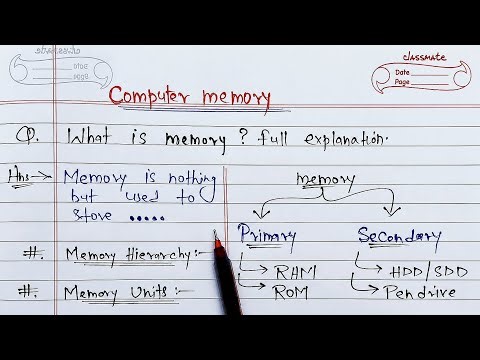 classmate
Date
Page
classmate
Date
Page
Computer memory
Q. What is memory? full explanation.
Ans→ Memory is nothing
but used to
store .....
#. Memory Hierarchy:-
#. Memory Units:-
memory
Primary
→ RAM
→ ROM
Secondary
→ HDD/SDD
→ Pendrive